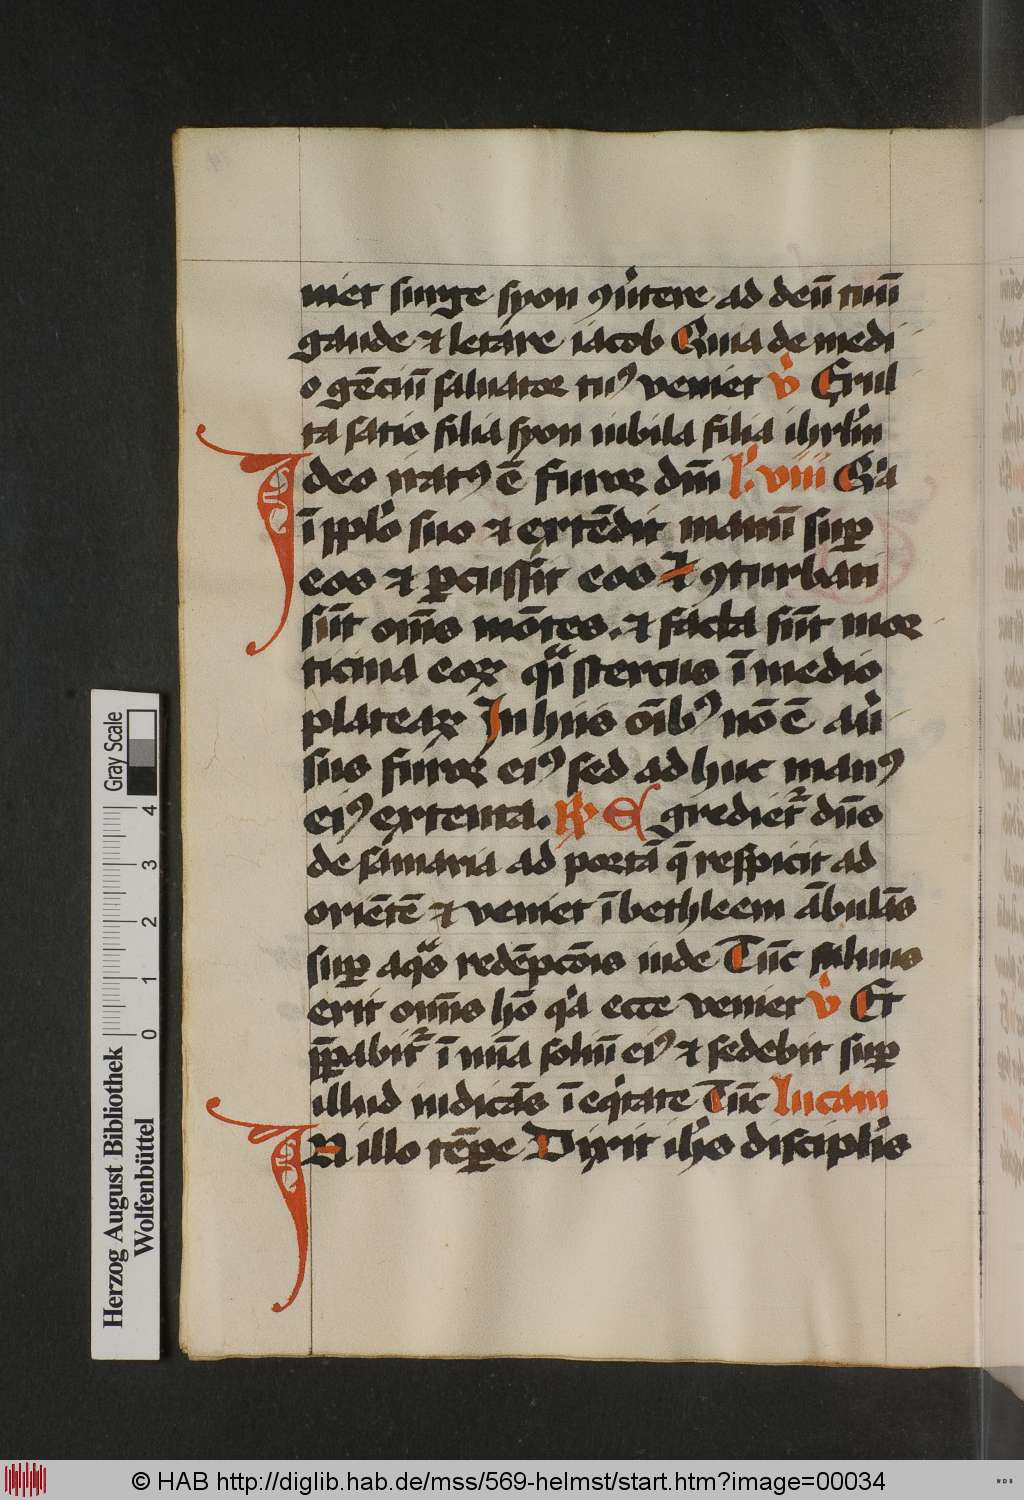 niet surge syon ꝯũtere ad deū tuū
gaude ⁊ letare iacob Quia de medi
o gēciū saluator tuꝰ veniet v̾ Exul
ta satis filia syon iubila filia ihrlm̄
Ideo iratꝰ ē furor dm̄ l̾. viii Q̾a
ī pplo̾ suo ⁊ extēdit manū suꝑ
eos ⁊ ꝑcussit eos ⁊ ꝯturbati
sūt om̄s mōtes. ⁊ facta sūt mor
ticina eoꝝ qͣi stercus ī medio
plateaꝝ In hiis oīb̾ꝰ nō ē au̾
sus furor eiꝰ sed ad huc manꝰ
eiꝰ extenta. ℟ E grediet̾ dn̄s
de samaria ad portā q̄ respicit ad
oriētē ⁊ veniet ī bethleem ābulās
suꝑ aqͣs redēpcōis iude Tūc saluus
erit om̄s hō q̾a ecce veniet v̾ Et
p̄ꝑabit̾ ī mīa soliū eiꝰ ⁊ sedebit suꝑ
illud iudicās ī eq̾tate Tūc lucam
IN illo tēꝑe Dixit ih̾s discipl̾is
Herzog August Bibliothek
Wolfenbüttel
0 1 2 3 4
Gray Scale
© HAB http://diglib.hab.de/mss/569-helmst/start.htm?image=00034